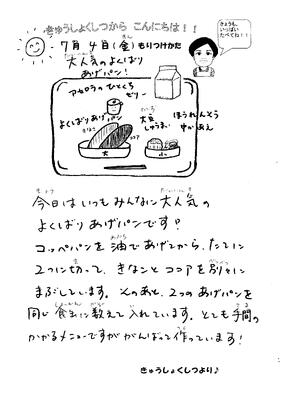 きゅうしょくしつから こんにちは!!
きょうも、
いっぱい
たべてね!!
7月 4日(金)もりつけかた
大人気のよくばり
あげパン!
アセロラのひとくち
ゼリー
よくばりあげパン
きなこ
ココア
大豆
しゅうまい
ほうれんそう
中かあえ
大
小
今日はいつもみんなに大人気の
よくばりあげパンです!
コッペパンを油であげてから、たてに
2つに切って、きなことココアを別々に
まぶしています。そのあと、2つのあげパンを
同じ食缶に数えて入れています。とても手間の
かかるメニューですががんばって作っています!
きゅうしょくしつより♪